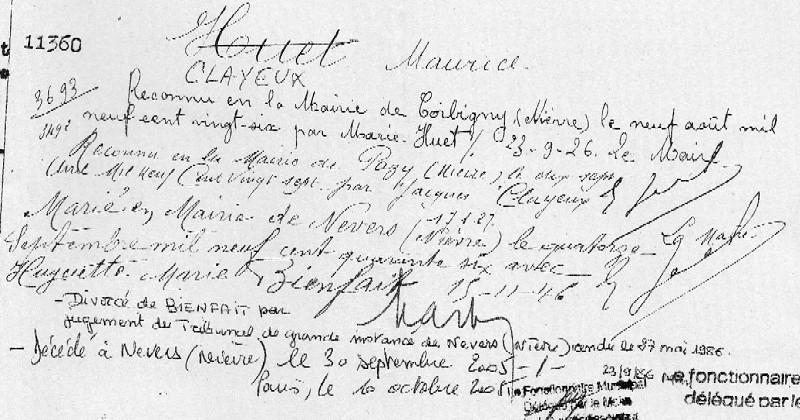 11360
Huet Maurice.
CLAYEUX
3693
Reconnu en la Mairie de Corbigny (Nièvre) le neuf août mil
neuf cent vingt-six par Marie Huet / 23-9-26. Le Maire
Reconnu en la Mairie de Pazy (Nièvre), le
Mil Neuf Cent vingt sept par Jacques Clayeux
17.1.27.
Marié en Mairie de Nevers (Nièvre) le quatorze
Septembre mil neuf cent quarante six avec
Huguette Marie Bienfait 15-11-46
- Divorcé de BIENFAIT par
jugement du Tribunal de grande instance de Nevers (Nièvre) rendu le 27 mai 1986.
- Décédé à Nevers (Nièvre) le 30 septembre 2005 -/-
Paris, le 10 octobre 2005
Le Fonctionnaire Municipal
délégué par le Maire
e fonctionnaire
délégué par le